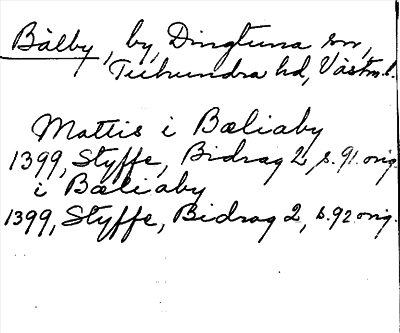 Bälby, by, Dingtuna sn,
Tuhundra hd, Västm.l.
Mattis i Bæliaby
1399, Styffe, Bidrag 2, s. 91. orig.
i Bæliaby
1399, Styffe, Bidrag 2, s. 92 orig.